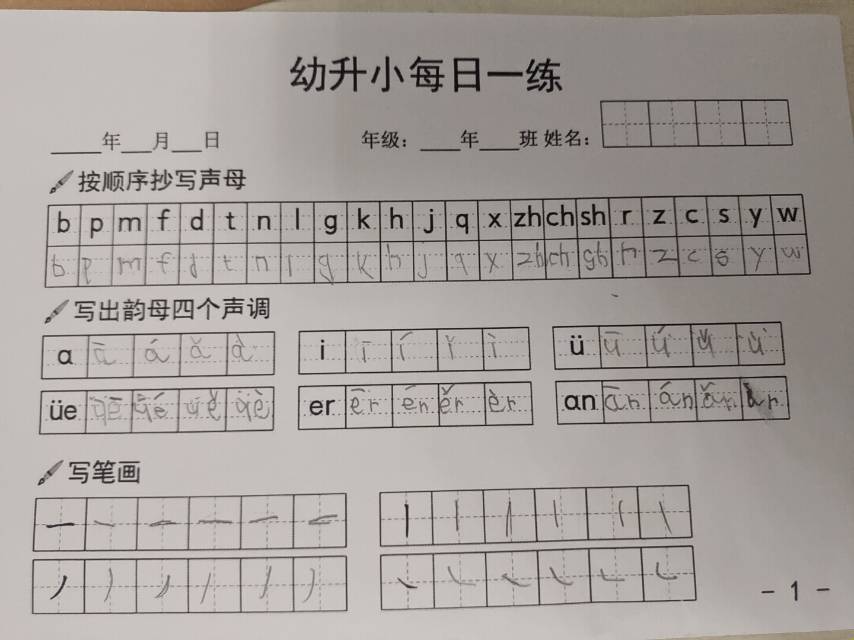 幼升小每日一练
_____年___月___日 年级：____年____班 姓名：
按顺序抄写声母
b p m f d t n l g k h j q x zh ch sh r z c s y w
b p m f d t n l g k h j q x zh ch sh r z c s y w
写出韵母四个声调
a ā á ǎ à i ī í ǐ ì ü ǖ ǘ ǚ ǜ
üe üē üé üě üè er ēr ér ěr èr an ān án ǎn àn
写笔画
- 1 -